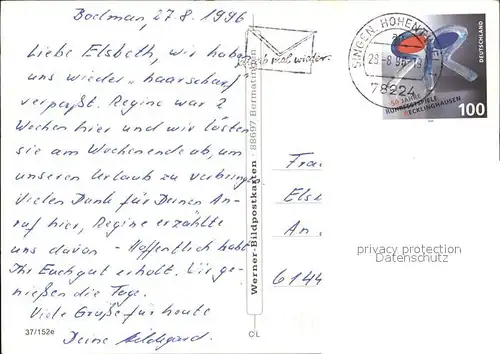 Bodman, 27.8.1996
Liebe Elsbeth, wir haben
uns wieder "haarscharf"
verpaßt. Regine war 2
Wochen hier und wir lösten
sie am Wochenende ab, um
unseren Urlaub zu verbringen.
Vielen Dank für Deinen An-
ruf hier, Regine erzählte
uns davon - Hoffentlich habt
Ihr Euch gut erholt. Wir ge-
nießen die Tage.
Viele Grüße für heute
Deine Hildegard.
37/152e
Werner-Bildpostkarten · 88697 Bermatingen
CL
mal wieder.
SINGEN, HOHENT
28-8.96-19
78224
DEUTSCHLAND
50 JAHRE
RUHRFESTSPIELE
RECKLINGHAUSEN
100
Frau
Els
An.
6144
privacy protection
Datenschutz